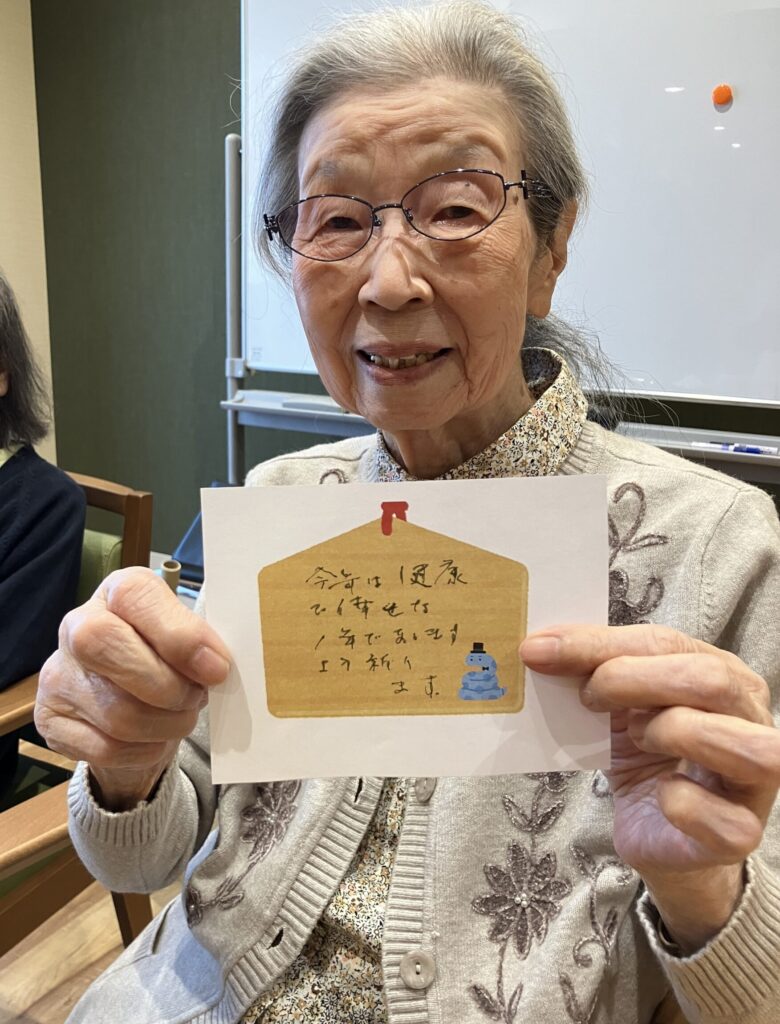 今年は健康
で幸せな
1年であります
よう祈り
ます。